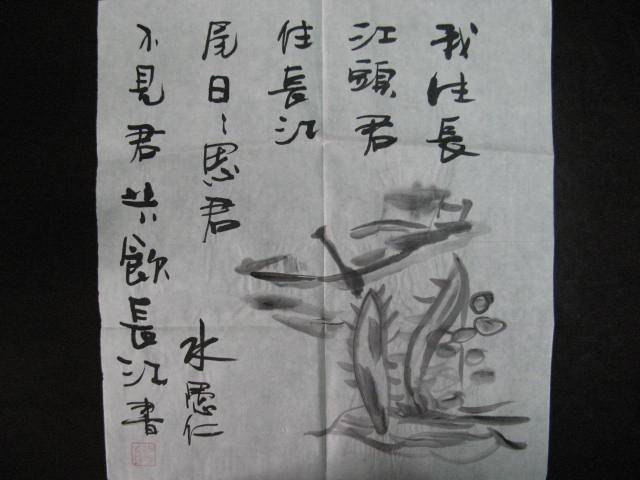 我住長
江頭君
住長江
尾日〻思君
不見君共飲長江
水
仁
書